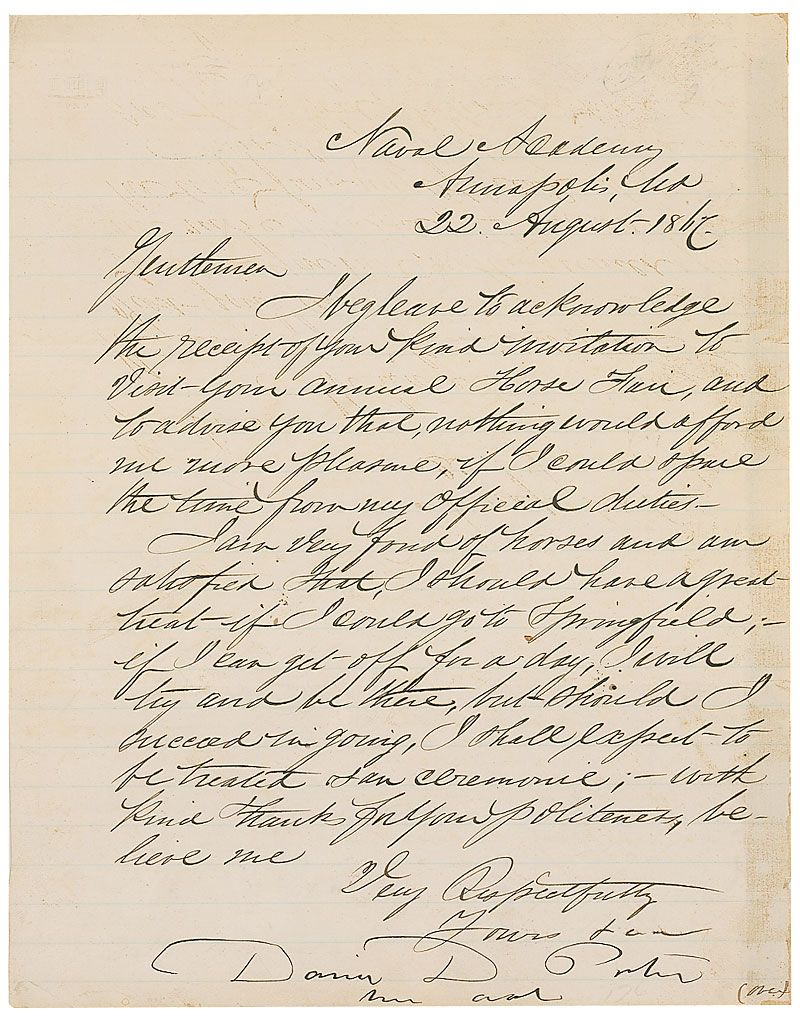 Naval Academy
Annapolis, Md
22. August. 1867
Gentlemen
I beg leave to acknowledge
the receipt of your kind invitation to
visit your annual Horse Fair, and
to advise you that, nothing would afford
me more pleasure, if I could spare
the time from my official duties.—
I am very fond of horses and am
satisfied that, I should have a great
treat—if I could go to Springfield;—
if I can get off for a day, I will
try and be there, but should I
succeed in going, I shall expect to
be treated san ceremonie;—with
kind thanks for your politeness, be-
lieve me
Very Respectfully
Yours
David D Porter
(over)